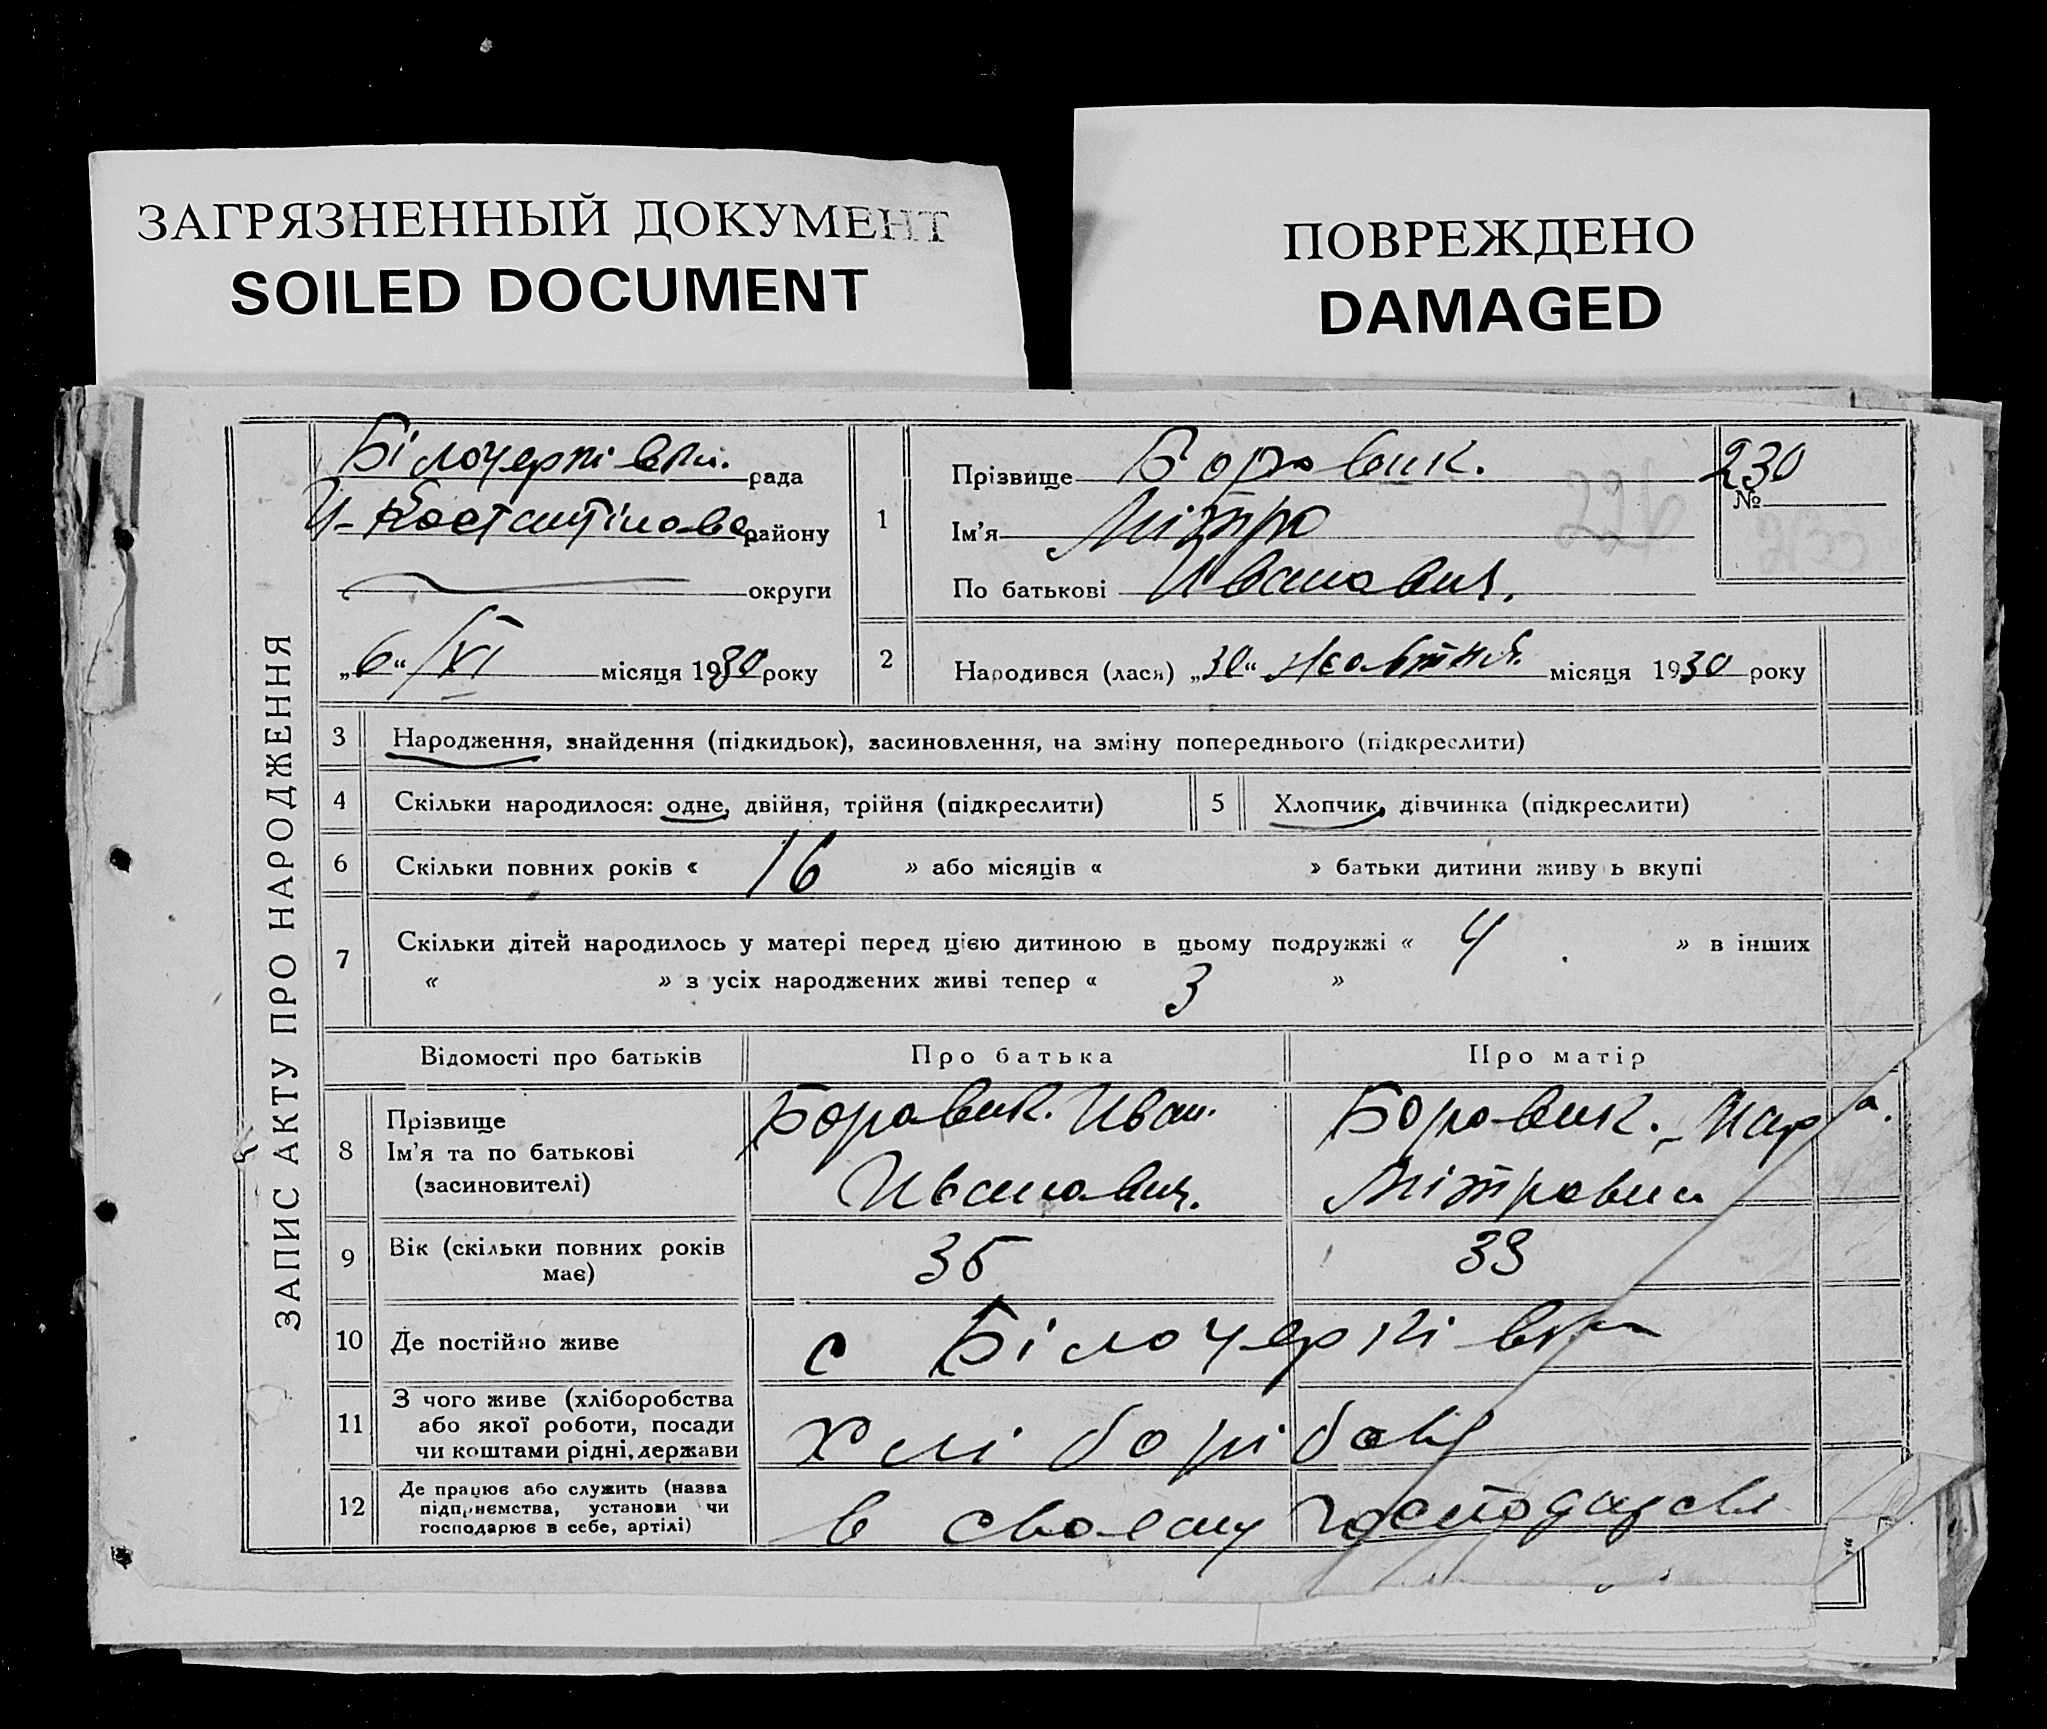 ЗАГРЯЗНЕННЫЙ ДОКУМЕНТ
SOILED DOCUMENT
ПОВРЕЖДЕНО
DAMAGED
ЗАПИС АКТУ ПРО НАРОДЖЕННЯ
Білочерківськ. рада
району
округи
„6“ /XI місяця 1930 року
1
Прізвище Боровик.
Ім'я Мітро
По батькові Иванович.
230
№
2
Народився (лася) „30“ жовтня місяця 1930 року
3 Народження, знайдення (підкидьок), засиновлення, на зміну попереднього (підкреслити)
4 Скільки народилося: одне, двійня, трійня (підкреслити)
5 Хлопчик, дівчинка (підкреслити)
6 Скільки повних років « 16 » або місяців « » батьки дитини живу ь вкупі
7 Скільки дітей народилось у матері перед цією дитиною в цьому подружжі « 4 » в інших
« » з усіх народжених живі тепер « 3 »
Відомості про батьків Про батька Про матір
8 Прізвище
Ім'я та по батькові
(засиновителі)
Боровик. Иван.
Иванович.
Боровик.
Мітровна
9 Вік (скільки повних років
має)
35 33
10 Де постійно живе с Білочерківка
11 З чого живе (хліборобства
або якої роботи, посади
чи коштами рідні, держави
хлі борі бство
12 Де працює або служить (назва
підприємства, установи чи
господарює в себе, артілі)
в своему господарсві